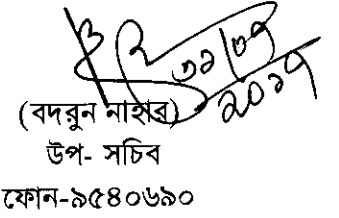 ৩১/০৭
২০১৭
(বদরুন নাহার)
উপ- সচিব
ফোন-৯৫৪০৬৯০